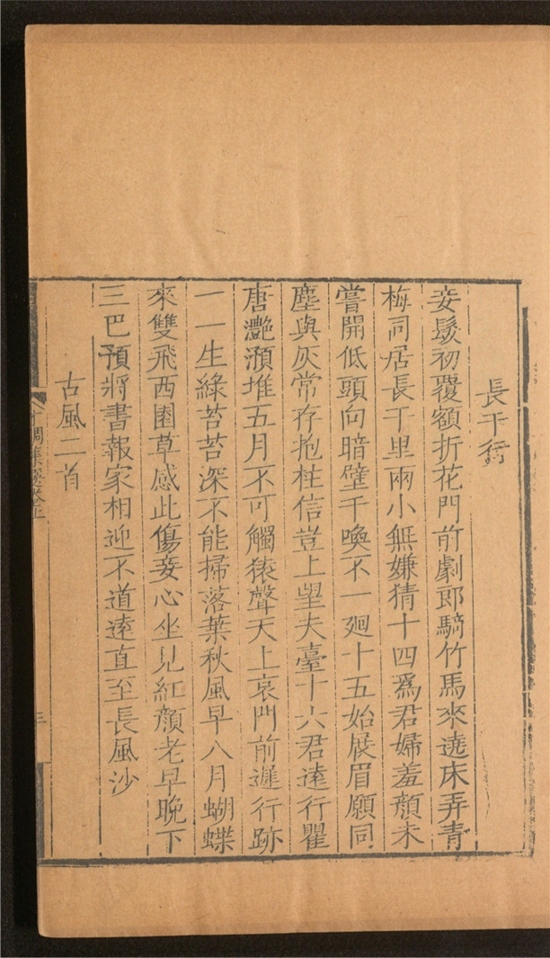 長干行
妾髮初覆額折花門前劇郎騎竹馬來遶床弄青
梅同居長干里兩小無嫌猜十四爲君婦羞顏未
嘗開低頭向暗壁千喚不一廻十五始展眉願同
塵與灰常存抱柱信豈上望夫臺十六君遠行瞿
唐灔澦堆五月不可觸猿聲天上哀門前遲行跡
一一生綠苔苔深不能掃落葉秋風早八月蝴蝶
來雙飛西園草感此傷妾心坐見紅顏老早晚下
三巴預將書報家相迎不道遠直至長風沙
古風二首
三